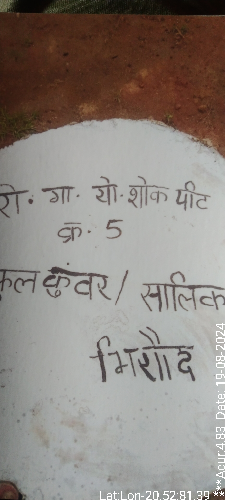 रो. गा. यो. शोक पीट
क्र. 5
फुलकुंवर / सालिक
भिरौद
Lat:Lon-20.52.81.39
***Acur:4.83 Date: 19-08-2024